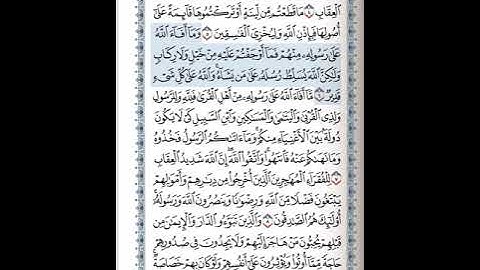 الْعِقَابِ ٤ مَا قَطَعْتُم مِّن لِّينَةٍ أَوْ تَرَكْتُمُوهَا قَائِمَةً عَلَىٰ
أُصُولِهَا فَبِإِذْنِ اللَّهِ وَلِيُخْزِيَ الْفَاسِقِينَ ٥ وَمَا أَفَاءَ اللَّهُ
عَلَىٰ رَسُولِهِ مِنْهُمْ فَمَا أَوْجَفْتُمْ عَلَيْهِ مِنْ خَيْلٍ وَلَا رِكَابٍ
وَلَٰكِنَّ اللَّهَ يُسَلِّطُ رُسُلَهُ عَلَىٰ مَن يَشَاءُ وَاللَّهُ عَلَىٰ كُلِّ شَيْءٍ
قَدِيرٌ ٦ مَّا أَفَاءَ اللَّهُ عَلَىٰ رَسُولِهِ مِنْ أَهْلِ الْقُرَىٰ فَلِلَّهِ وَلِلرَّسُولِ
وَلِذِي الْقُرْبَىٰ وَالْيَتَامَىٰ وَالْمَسَاكِينِ وَابْنِ السَّبِيلِ كَيْ لَا يَكُونَ
دُولَةً بَيْنَ الْأَغْنِيَاءِ مِنكُمْ وَمَا آتَاكُمُ الرَّسُولُ فَخُذُوهُ
وَمَا نَهَاكُمْ عَنْهُ فَانتَهُوا وَاتَّقُوا اللَّهَ إِنَّ اللَّهَ شَدِيدُ الْعِقَابِ
٧ لِلْفُقَرَاءِ الْمُهَاجِرِينَ الَّذِينَ أُخْرِجُوا مِن دِيَارِهِمْ وَأَمْوَالِهِمْ
يَبْتَغُونَ فَضْلًا مِّنَ اللَّهِ وَرِضْوَانًا وَيَنصُرُونَ اللَّهَ وَرَسُولَهُ
أُولَٰئِكَ هُمُ الصَّادِقُونَ ٨ وَالَّذِينَ تَبَوَّءُوا الدَّارَ وَالْإِيمَانَ مِن
قَبْلِهِمْ يُحِبُّونَ مَنْ هَاجَرَ إِلَيْهِمْ وَلَا يَجِدُونَ فِي صُدُورِهِمْ
حَاجَةً مِّمَّا أُوتُوا وَيُؤْثِرُونَ عَلَىٰ أَنفُسِهِمْ وَلَوْ كَانَ بِهِمْ خَصَاصَةٌ